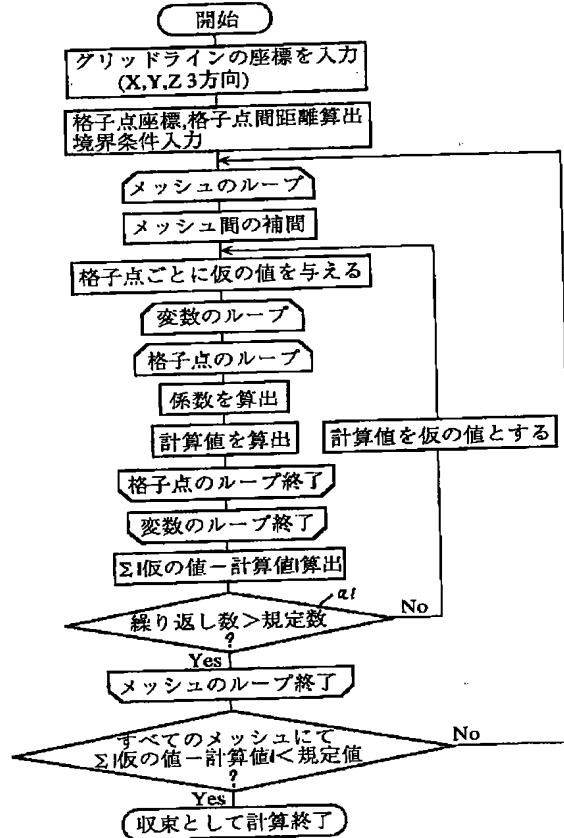 開始
グリッドラインの座標を入力
(X,Y,Z 3方向)
格子点座標,格子点間距離算出
境界条件入力
メッシュのループ
メッシュ間の補間
格子点ごとに仮の値を与える
変数のループ
格子点のループ
係数を算出
計算値を算出
計算値を仮の値とする
格子点のループ終了
変数のループ終了
Σ|仮の値－計算値|算出
a1
繰り返し数>規定数
?
No
Yes
メッシュのループ終了
すべてのメッシュにて
Σ|仮の値－計算値|<規定値
?
No
Yes
収束として計算終了